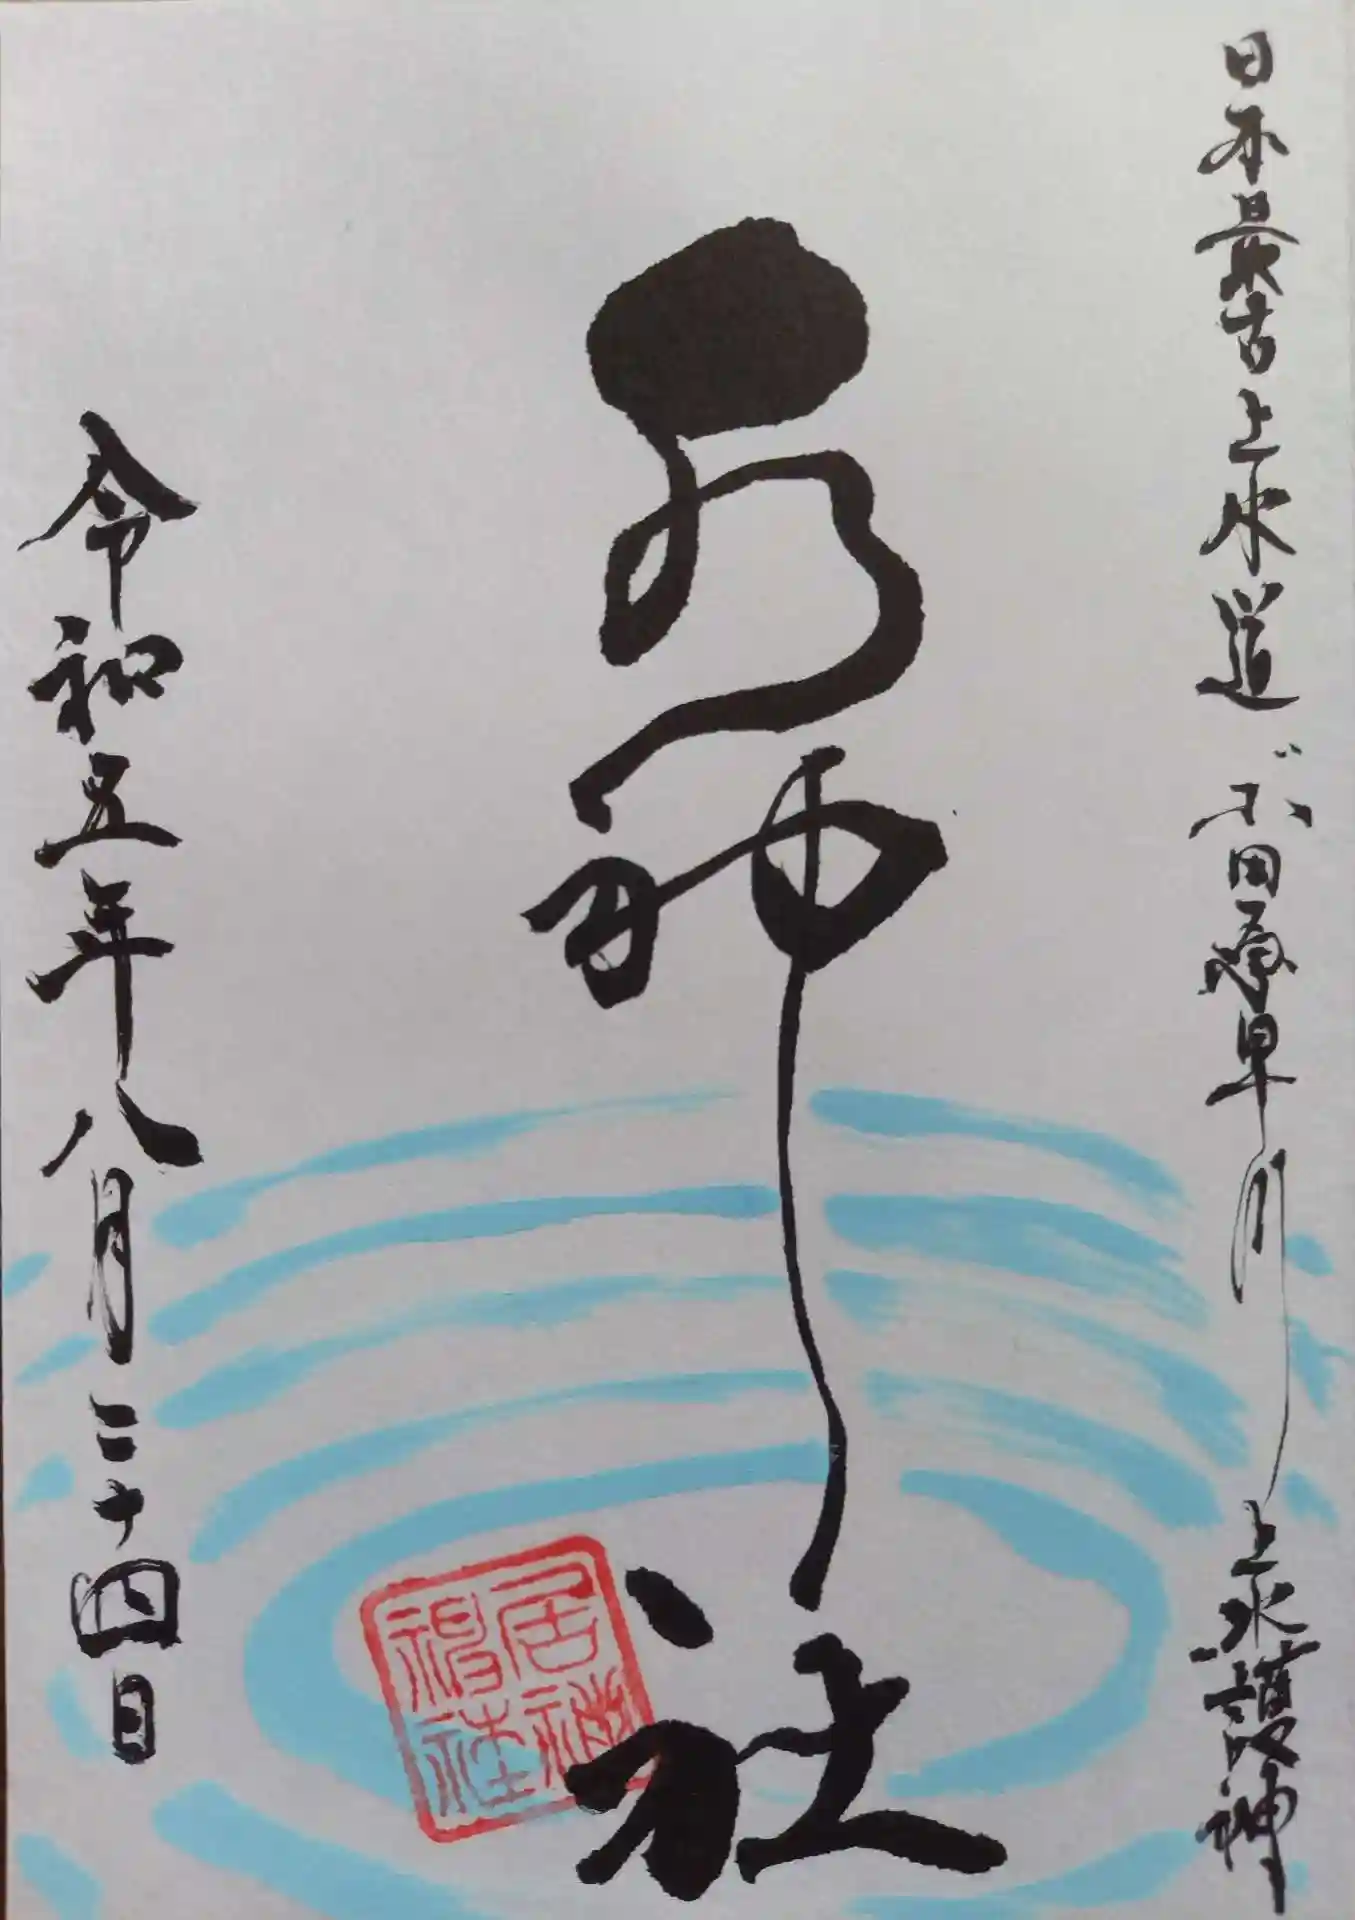 日本最古上水道 小田原早川上水護神
居神社
令和五年八月二十四日
居神神社